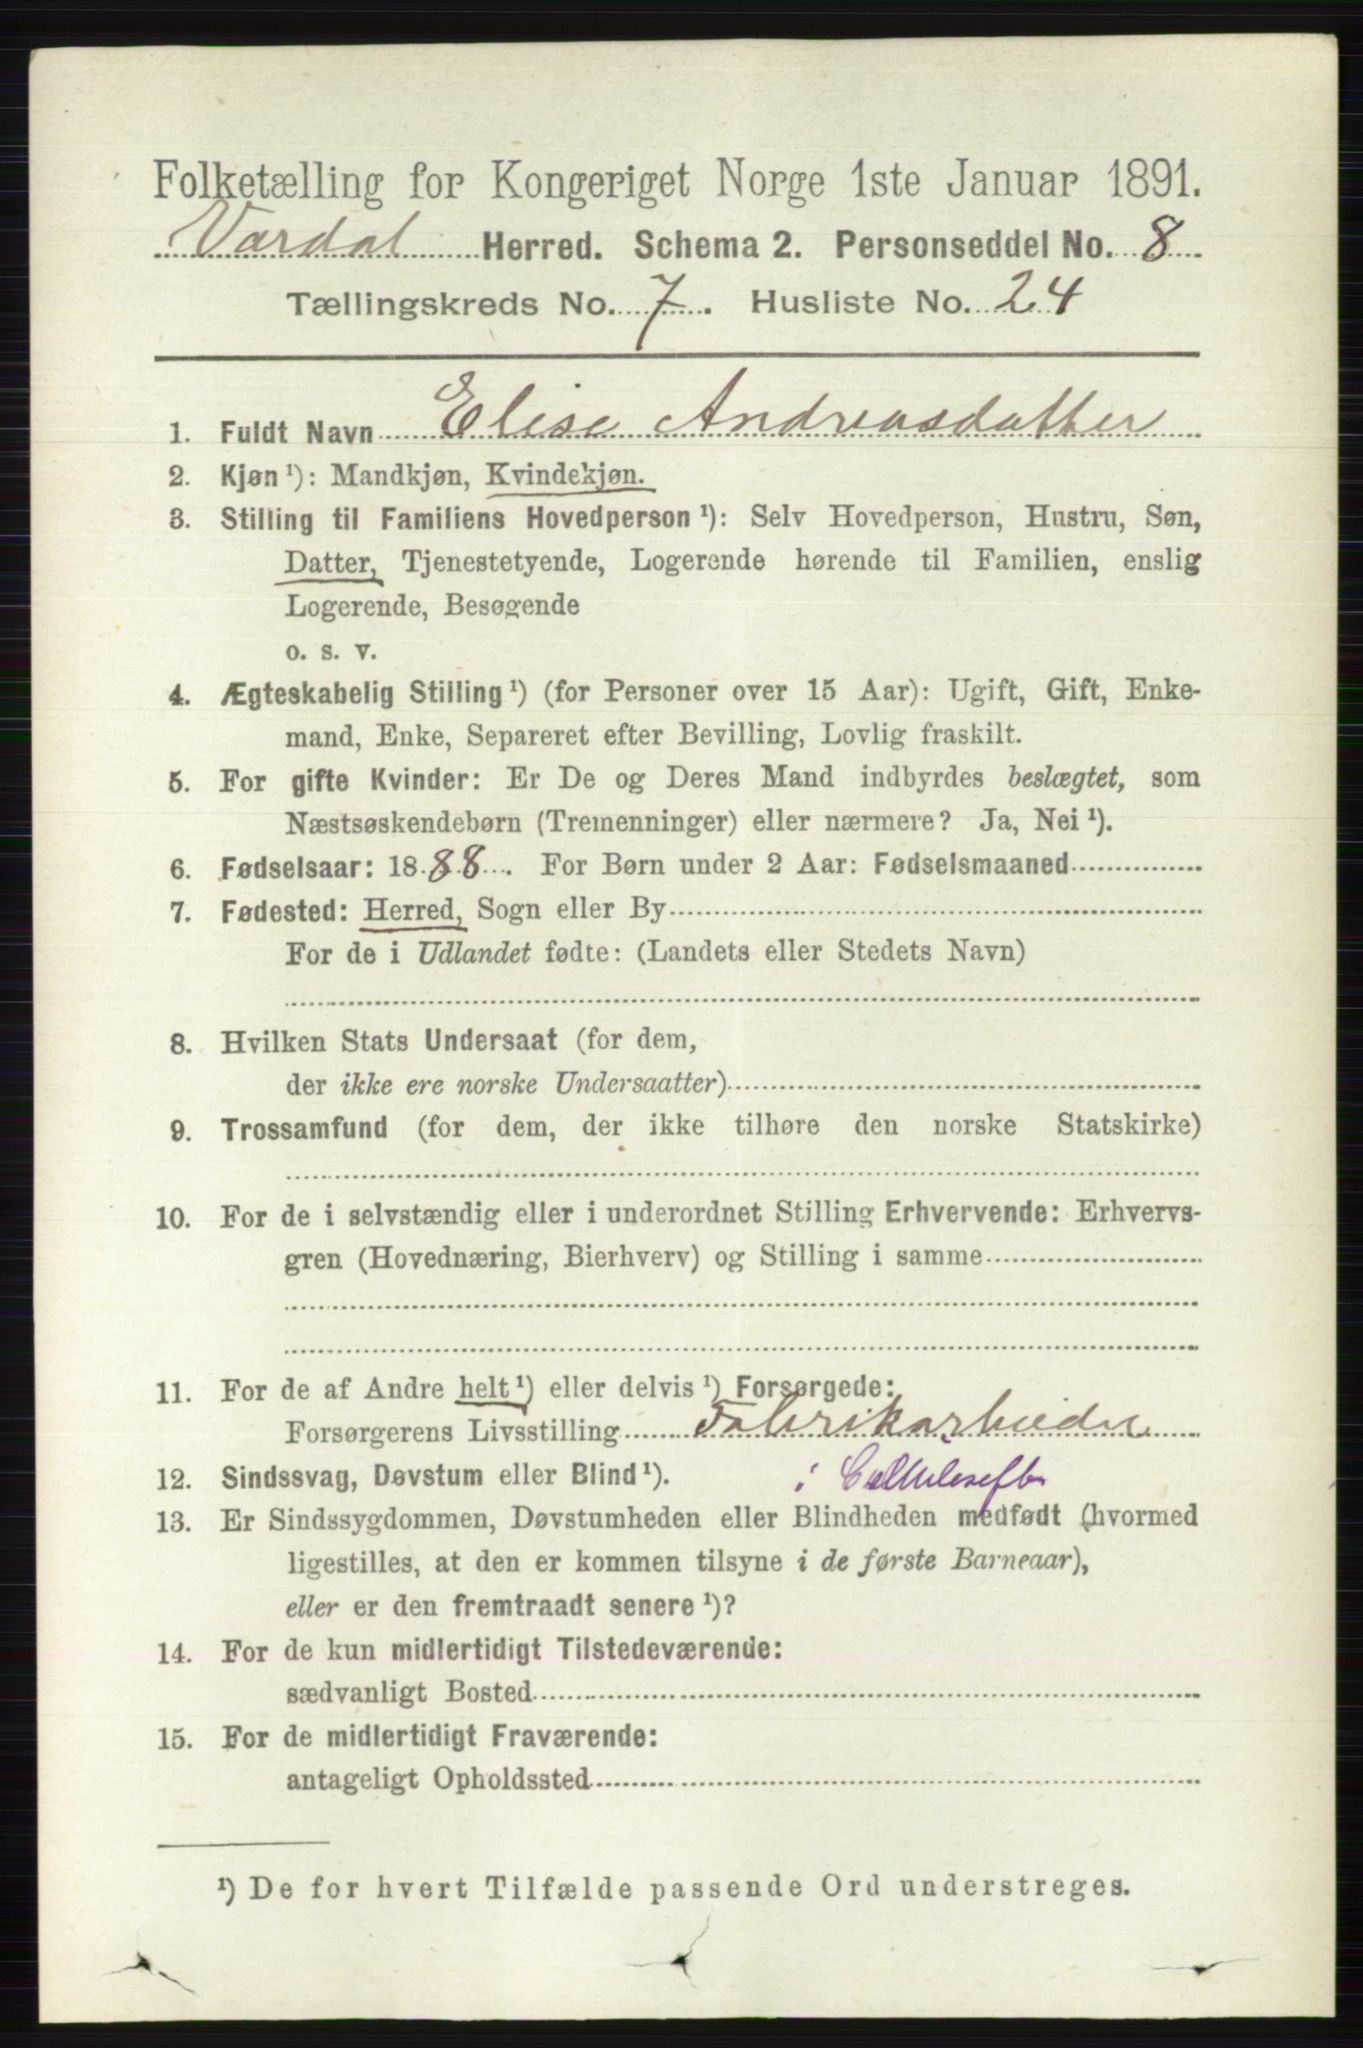 Folketælling for Kongeriget Norge 1ste Januar 1891.
Vardal Herred. Schema 2. Personseddel No. 8
Tællingskreds No. 7. Husliste No. 24
1. Fuldt Navn Elise Andreasdatter
2. Kjøn ¹): Mandkjøn, Kvindekjøn.
3. Stilling til Familiens Hovedperson ¹): Selv Hovedperson, Hustru, Søn,
Datter, Tjenestetyende, Logerende hørende til Familien, enslig
Logerende, Besøgende
o. s. v.
4. Ægteskabelig Stilling ¹) (for Personer over 15 Aar): Ugift, Gift, Enke-
mand, Enke, Separeret efter Bevilling, Lovlig fraskilt.
5. For gifte Kvinder: Er De og Deres Mand indbyrdes beslægtet, som
Næstsøskendebørn (Tremenninger) eller nærmere? Ja, Nei ¹).
6. Fødselsaar: 1888. For Børn under 2 Aar: Fødselsmaaned
7. Fødested: Herred, Sogn eller By
For de i Udlandet fødte: (Landets eller Stedets Navn)
8. Hvilken Stats Undersaat (for dem,
der ikke ere norske Undersaatter)
9. Trossamfund (for dem, der ikke tilhøre den norske Statskirke)
10. For de i selvstændig eller i underordnet Stilling Erhvervende: Erhvervs-
gren (Hovednæring, Bierhverv) og Stilling i samme
11. For de af Andre helt ¹) eller delvis ¹) Forsørgede:
Forsørgerens Livsstilling Fabrikarbeider
12. Sindssvag, Døvstum eller Blind ¹). i
13. Er Sindssygdommen, Døvstumheden eller Blindheden medfødt (hvormed
ligestilles, at den er kommen tilsyne i de første Barneaar),
eller er den fremtraadt senere ¹)?
14. For de kun midlertidigt Tilstedeværende:
sædvanligt Bosted
15. For de midlertidigt Fraværende:
antageligt Opholdssted
¹) De for hvert Tilfælde passende Ord understreges.